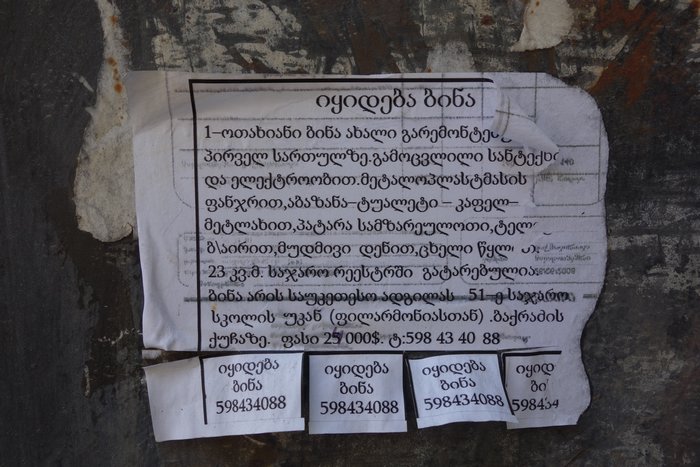 იყიდება ბინა
1–ოთახიანი ბინა ახალი
პირველ სართულზე.გამოცვლილი
და ელექტროობით.მეტალოპლასტმასის
ფანჯრით,აბაზანა–ტუალეტი – კაფელ–
მეტლახით,პატარა სამზარეულოთი,
ბ\აირით,მუდმივი დენით,ცხელი
23 კვ.მ. საჯარო რეესტრში გატარებულია.
ბინა არის საუკეთესო ადგილას 51–ე საჯარო
სკოლის უკან (ფილარმონიასთან) .ბაქრამის
ქუჩაზე. ფასი 25 000$. ტ:598 43 40 88
იყიდება
ბინა
598434088
იყიდება
ბინა
598434088
იყიდება
ბინა
598434088